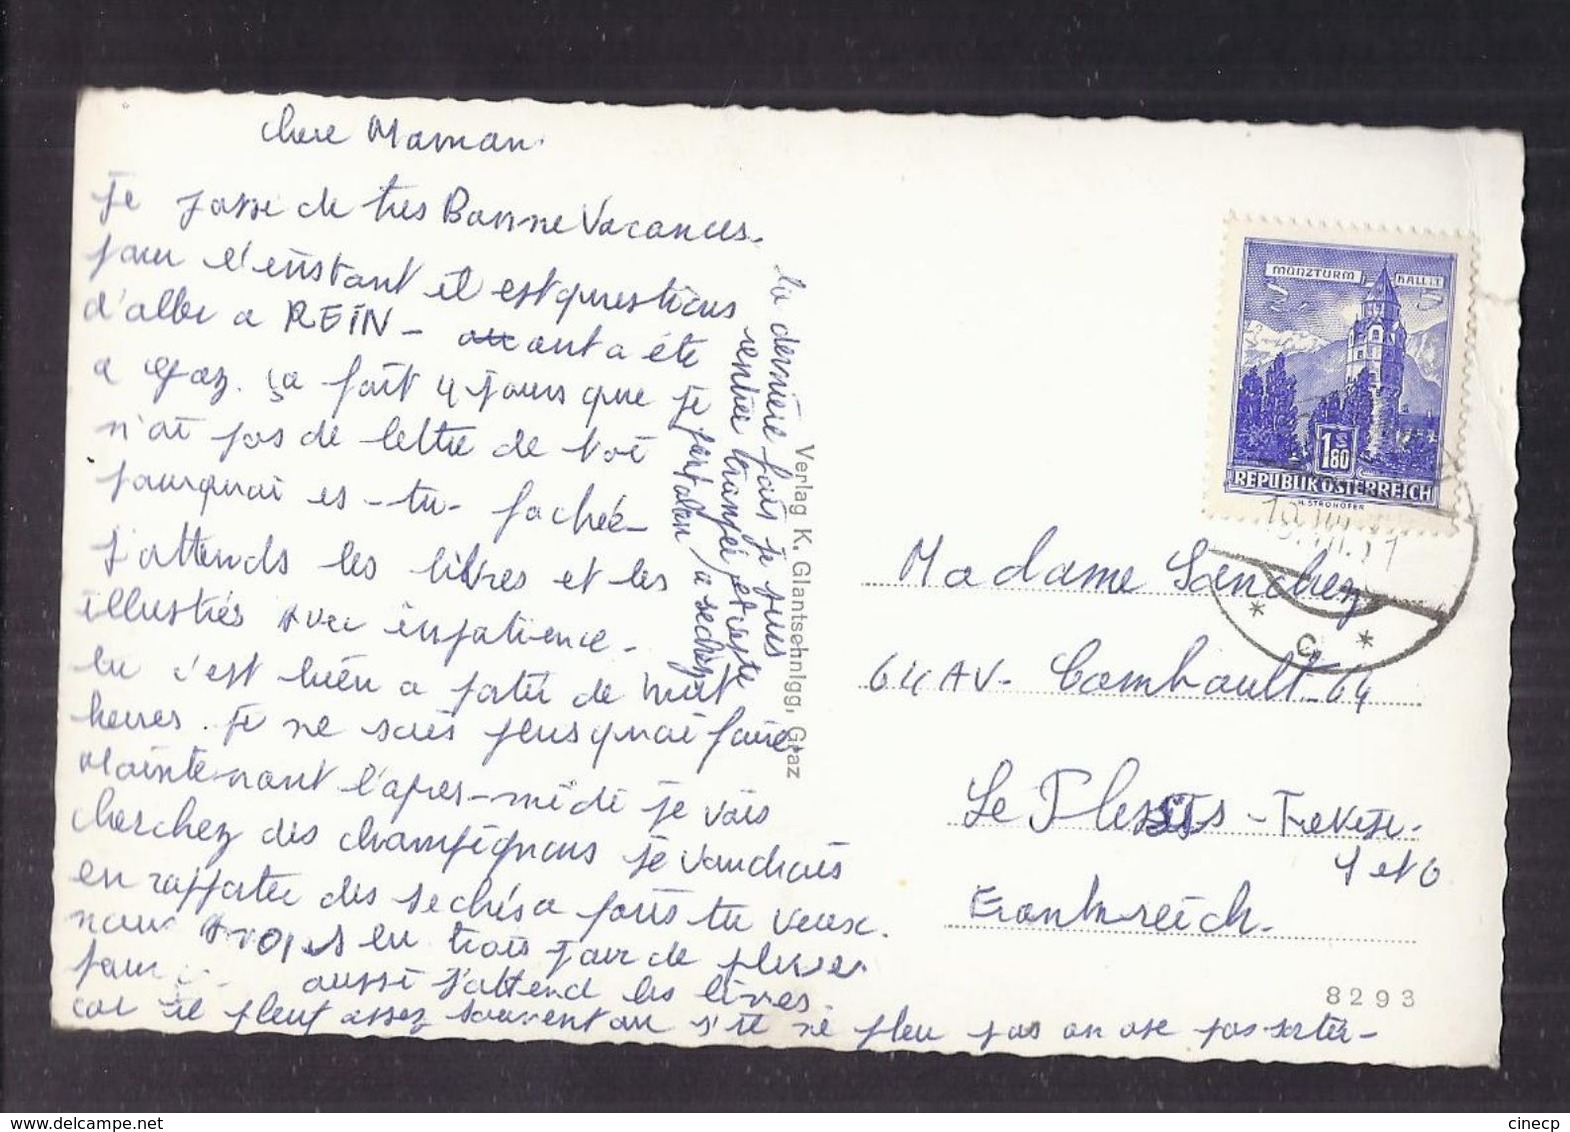 Chere Maman.
Je passe de tres Bonne Vacances.
pour l'enistant il est questions
d'aller a REIN - ont a été
a Graz. ça fait 4 jours que je
n'ai pas de lettre de toi
pourquoi es-tu- fachée-
J'attends les livres et les
illustrés avec impatience-
lu c'est bien a partir de huit
heures. Je ne sais plus quoi faire
Maintenant l'apres-midi je vais
cherchez des champignons je voudrais
en rapporter des sechés a fois tu veux.
nous avons eu trois jour de pluie
pour aussi j'attend les livres.
car il pleut assez souvent ou s'il ne pleu pas on ose pas sortir-
la derniere fois je suis
rentrer trempée et reste
je fait a sechez
Verlag K. Glantschnigg, Graz
MÜNZTURM HALL i.T.
S 1.80
REPUBLIK ÖSTERREICH
H. STROHOFER
* c *
Madame Sanchez
64 AV- Combault-64
Le Plessis-Trevise-
S et O
Frankreich.
8293
cinecp